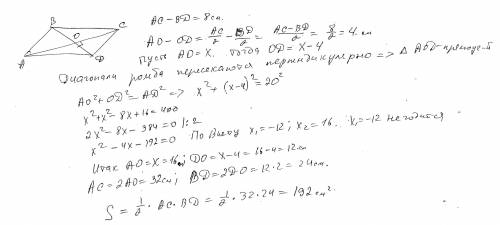 B
C
O
A
D
AC-BD=8см.
AO-OD=AC/2-BD/2=(AC-BD)/2=8/2=4.см
Пусть AO=X. Тогда OD=X-4
Диагонали ромба пересекаются перпендикулярно => Δ AOD-прямоугол
AO²+OD²=AD² => x²+(x-4)²=20²
x²+x²-8x+16=400
2x²-8x-384=0 |:2
x²-4x-192=0 По Виету x₁=-12; x₂=16. x₁=-12 не годится
Итак AO=X=16см; DO=X-4=16-4=12см
AC=2AO=32см; BD=2DO=12·2=24см.
S=1/2·AC·BD=1/2·32·24=192см².